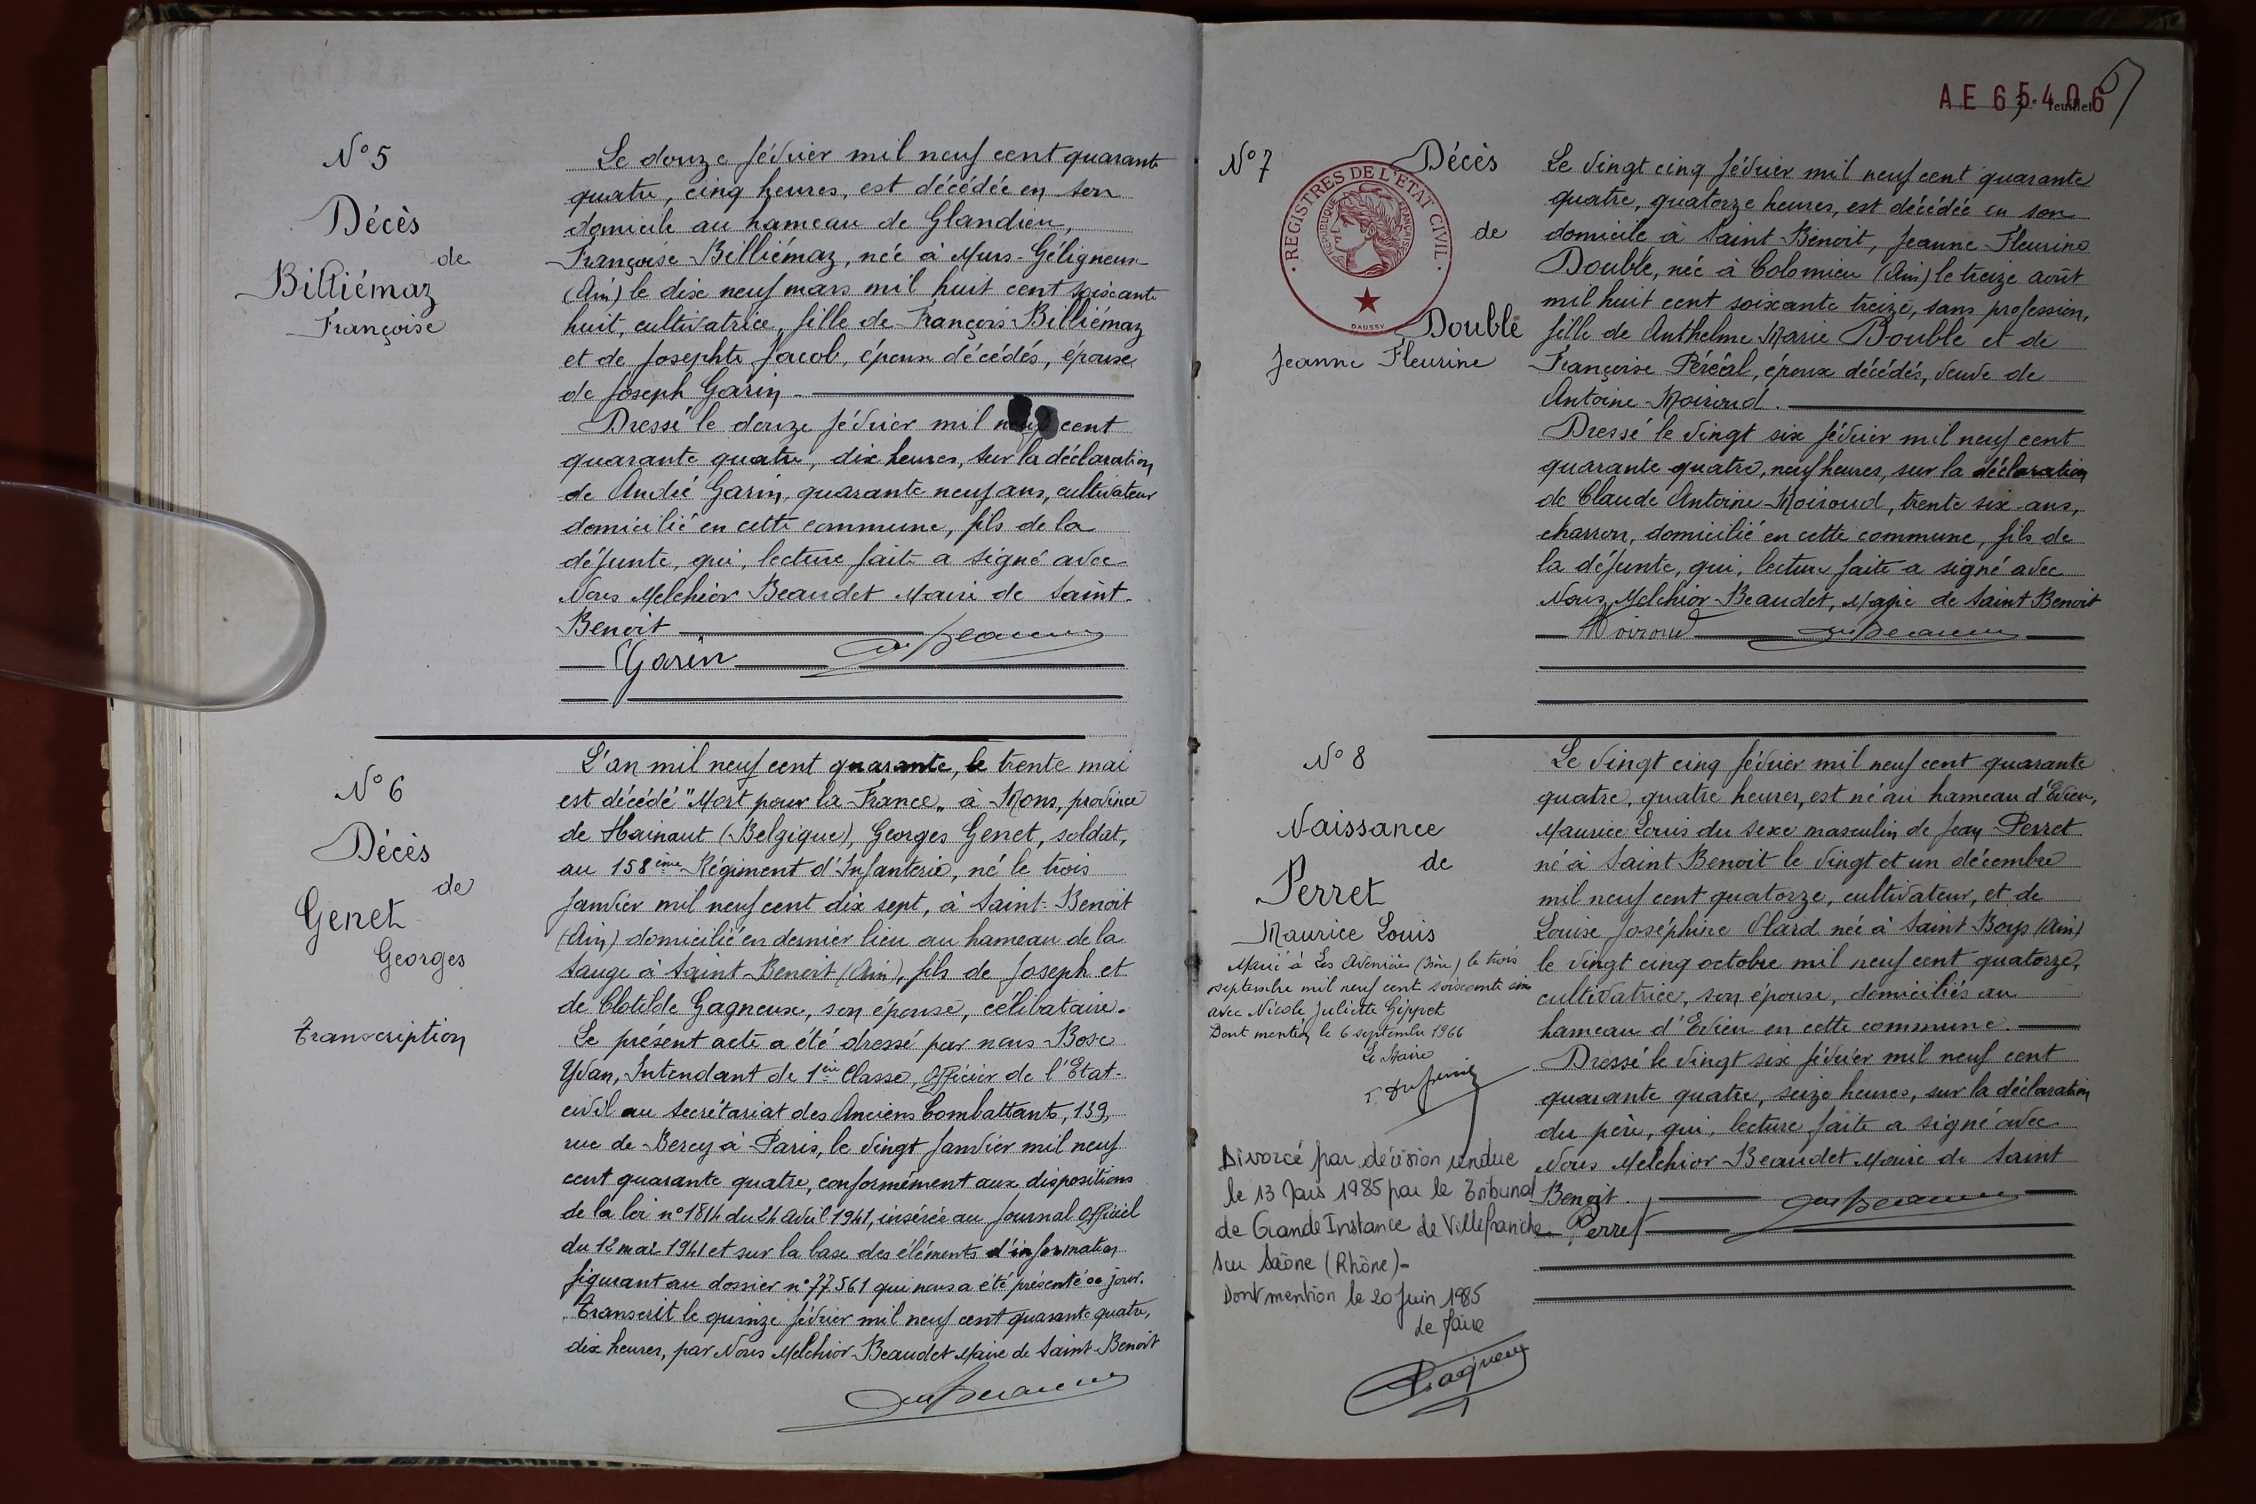 N° 5
Décès
de
Billiémaz
Françoise
Le douze février mil neuf cent quarante
quatre, cinq heures, est décédée en son
domicile au hameau de Glandieu,
Françoise Billiémaz, née à Murs-Géligneux
(Ain) le dix neuf mars mil huit cent soixante
huit, cultivatrice, fille de François Billiémaz
et de Josephte Jacob, époux décédés, épouse
de Joseph Garin
Dressé le douze février mil neuf cent
quarante quatre, dix heures, sur la déclaration
de André Garin, quarante neuf ans, cultivateur
domicilié en cette commune, fils de la
défunte, qui, lecture faite a signé avec
Nous Melchior Beaudet Maire de Saint-
Benoit
Garin
N° 6
Décès
de
Genet
Georges
Transcription
L'an mil neuf cent quarante, le trente mai
est décédé "Mort pour la France" à Mons, province
de Hainaut (Belgique), Georges Genet, soldat,
au 158ème Régiment d'Infanterie, né le trois
janvier mil neuf cent dix sept, à Saint-Benoit
(Ain) domicilié en dernier lieu au hameau de la
Sauge à Saint-Benoit (Ain), fils de Joseph et
de Clotilde Gagneux, son épouse, célibataire.
Le présent acte a été dressé par nous Bosc
Yvan, Intendant de 1ère Classe, Officier de l'Etat-
civil au Secrétariat des Anciens Combattants, 139,
rue de Bercy à Paris, le vingt janvier mil neuf
cent quarante quatre, conformément aux dispositions
de la loi n° 1814 du 24 avril 1941, insérée au Journal Officiel
du 12 mai 1941 et sur la base des éléments d'information
figurant au dossier n° 77.561 qui nous a été présenté ce jour.
Transcrit le quinze février mil neuf cent quarante quatre,
dix heures, par Nous Melchior Beaudet Maire de Saint-Benoit
AE 65406
feuillet
N° 7
Décès
de
Double
Jeanne Fleurine
REGISTRES DE L'ETAT CIVIL
REPUBLIQUE FRANÇAISE
DAUSSY
Le vingt cinq février mil neuf cent quarante
quatre, quatorze heures, est décédée en son
domicile à Saint Benoit, Jeanne Fleurine
Double, née à Colomieu (Ain) le treize août
mil huit cent soixante treize, sans profession,
fille de Anthelme Marie Double et de
Françoise Péréal, époux décédés, veuve de
Antoine Moiroud.
Dressé le vingt six février mil neuf cent
quarante quatre, neuf heures, sur la déclaration
de Claude Antoine Moiroud, trente six ans,
charron, domicilié en cette commune, fils de
la défunte, qui, lecture faite a signé avec
Nous, Melchior Beaudet, Maire de Saint Benoit
Moiroud
N° 8
Naissance
de
Perret
Maurice Louis
Marié à Les Avenières (Isère) le trois
septembre mil neuf cent soixante six
avec Nicole Juliette Gippet
Dont mention le 6 septembre 1966
Le Maire
Divorcé par décision rendue
le 13 Mars 1985 par le Tribunal
de Grande Instance de Villefranche
sur Saône (Rhône)-
Dont mention le 20 Juin 1985
Le Maire
Le vingt cinq février mil neuf cent quarante
quatre, quatre heures, est né au hameau d'Evieu,
Maurice Louis du sexe masculin de Jean Perret
né à Saint Benoit le vingt et un décembre
mil neuf cent quatorze, cultivateur, et de
Louise Joséphine Olard née à Saint Boys (Ain)
le vingt cinq octobre mil neuf cent quatorze,
cultivatrice, son épouse, domiciliés au
hameau d'Evieu en cette commune.
Dressé le vingt six février mil neuf cent
quarante quatre, seize heures, sur la déclaration
du père, qui, lecture faite a signé avec
Nous Melchior Beaudet Maire de Saint
Benoit.
Perret